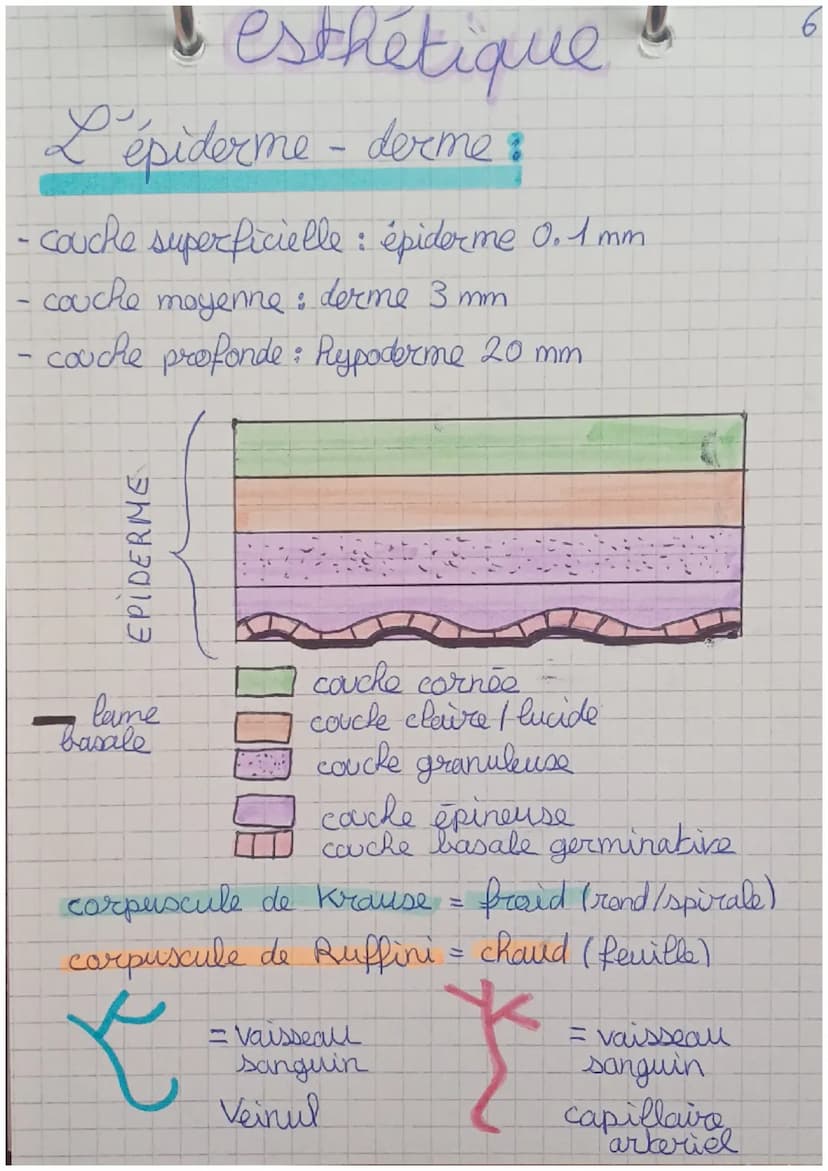 6
esthétique
L'épiderme - derme :
- couche superficielle : épiderme 0.1 mm
- couche moyenne : derme 3 mm
- couche profonde : hypoderme 20 mm
EPIDERME
couche cornée
lame
basale
couche claire / lucide
couche granuleuse
couche épineuse
couche basale germinative
corpuscule de Krause = froid (rond/spirale)
corpuscule de Ruffini = chaud (feuille)
= vaisseau
sanguin
Veinul
= vaisseau
sanguin
capillaire
arteriel